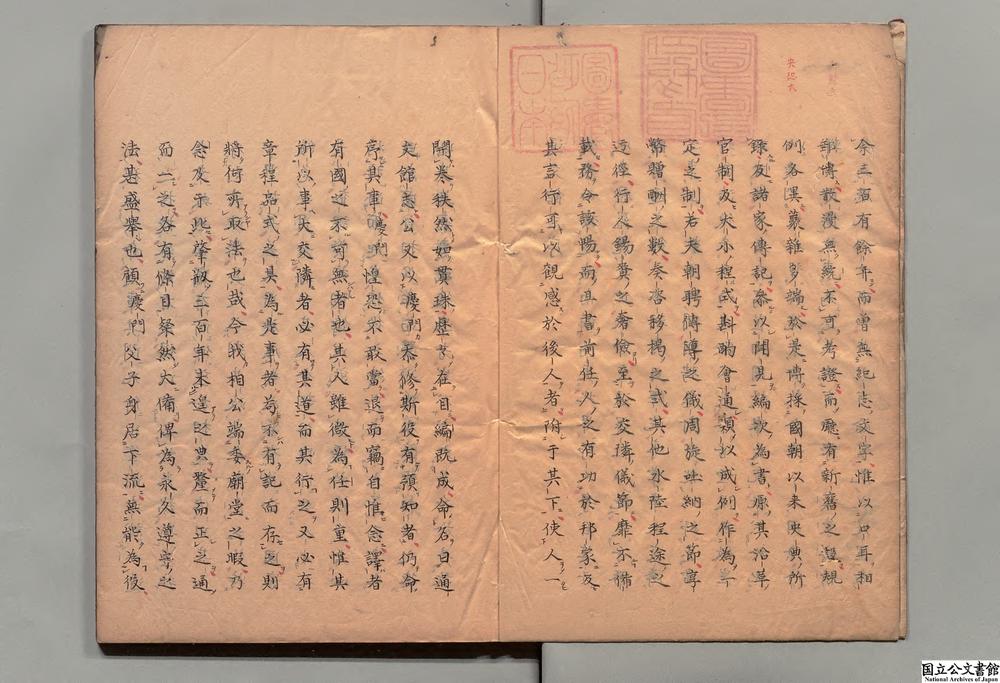 余三百有餘年而曾無紀志文字惟以口耳相
傳散漫無統不可考證而廳有新舊之規
例各異叢雜多端於是博採國朝以來典所
錄及諸家傳記參以聞見編次為書原其沿革
官制及大小程式斟酌會通類以成例作為
定之制若夫朝聘傳陣之儀周旋吐納之節享
幣贈酬之數奏咨移揭之式其他水陸程途之
迂徑行人錫賚之奢儉至於交隣儀節靡不備
載務令該暢而且書前任人之有功於邦家及
其言行可以觀感於後人者附于其下使人一
開卷秩然如貫珠歷歷在目編既成命名曰通
文館志公又以慶門忝修斯役有預知者仍命
序其事慶門惶恐不敢當退而竊自惟念譯者
有國之不可無者也其人雖微為任則重惟其
所以事大交隣者必有其道而其行之又必有
章程品式之具為是事者苟不有記而存之則
將何所取法也哉今我相公端委廟堂之暇乃
念及于此肇叙三百年未遑之典釐而正之通
而一之各有條目粲然大備俾為永久遵守之
法甚盛舉也顧慶門父子身居下流無能為役
国立公文書館
National Archives of Japan